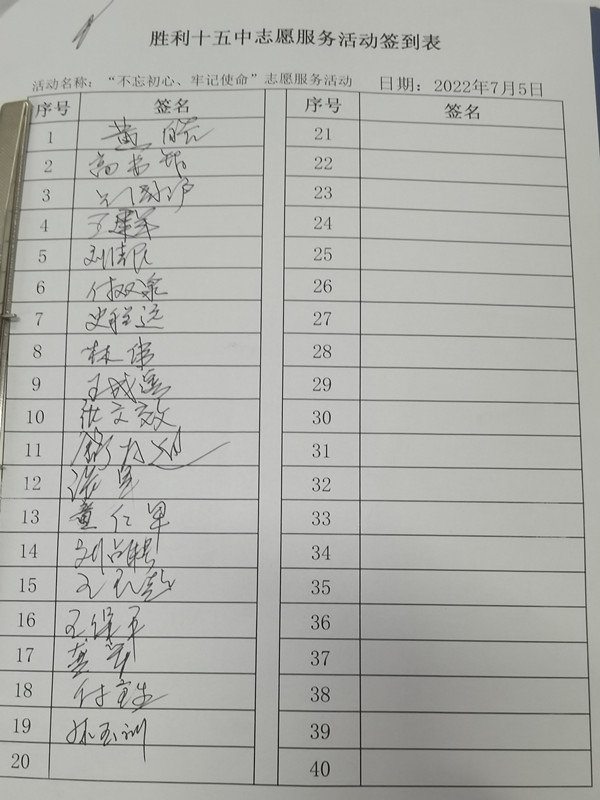 胜利十五中志愿服务活动签到表
活动名称：“不忘初心、牢记使命”志愿服务活动 日期：2022年7月5日
序号 签名 序号 签名
1 黄 21
2 高 22
3 23
4 王 24
5 刘 25
6 付双泉 26
7 史程远 27
8 林伟 28
9 王成 29
10 张文效 30
11 31
12 32
13 董仁军 33
14 刘 34
15 王 35
16 王保玉 36
17 37
18 付宝生 38
19 孙玉训 39
20 40